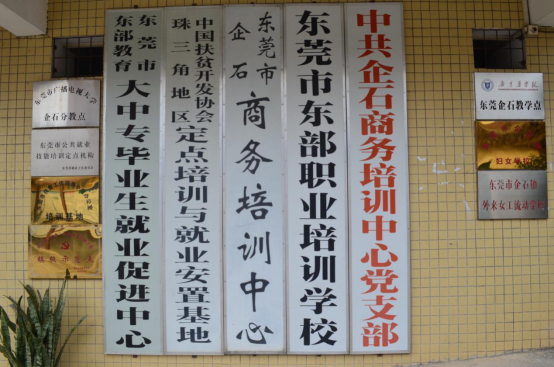 东莞市广播电视大学
企石分教点
东莞市公共就业
技能培训定点机构
培训基地
东莞市
东部教育
大中专毕业生就业促进中心
中国扶贫开发协会
珠三角地区
定点培训与就业安置基地
东莞市
企石
商务培训中心
东莞市东部职业培训学校
中共企石商务培训中心党支部
东莞企石教学点
妇女学校
东莞市企石镇
外来女工流动学校